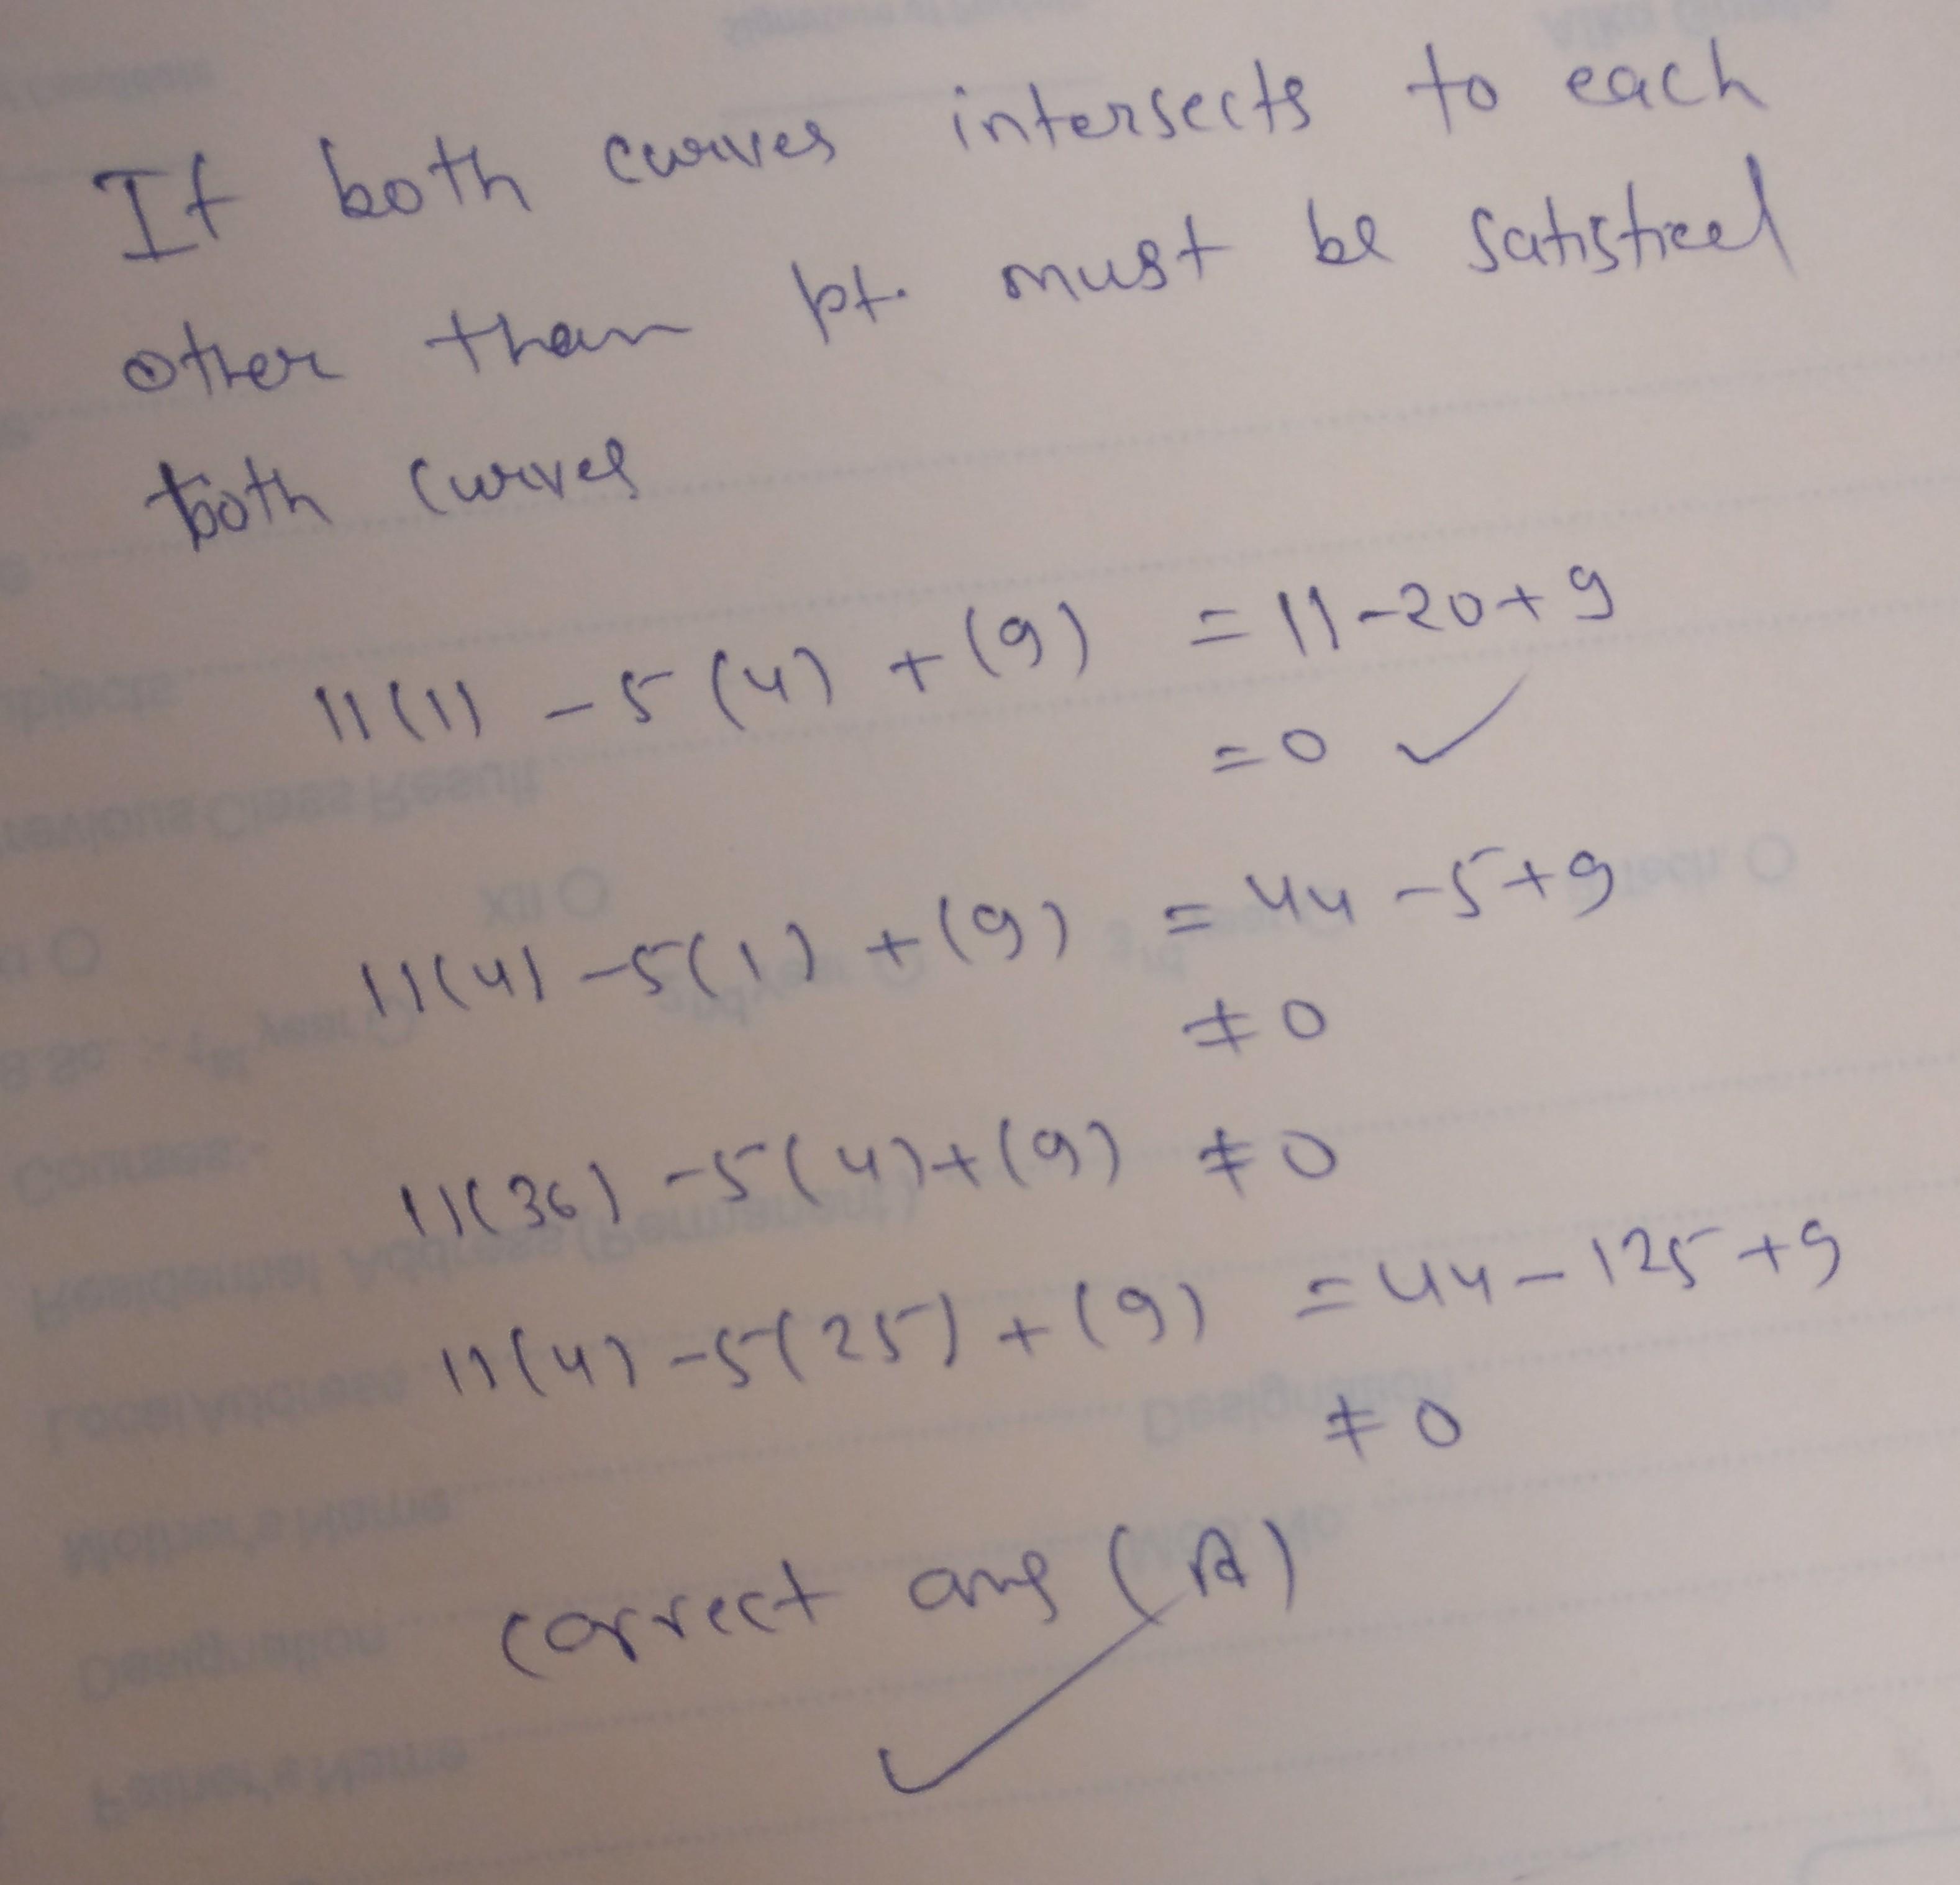 If both curves intersects to each
other then pt. must be satisfied
both curves
11(1) - 5(4) + (9) = 11-20+9
= 0 ✓
11(4) - 5(1) + (9) = 44 - 5+9
≠ 0
11(36) - 5(4)+(9) ≠ 0
11(4) - 5(25) + (9) = 44 - 125+9
≠ 0
correct ans (A)